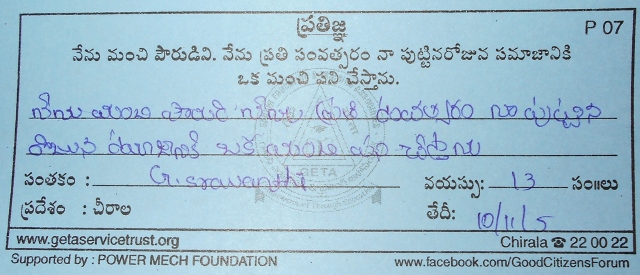 ప్రతిజ్ఞ
P 07
నేను మంచి పౌరుడిని. నేను ప్రతి సంవత్సరం నా పుట్టినరోజున సమాజానికి
ఒక మంచి పని చేస్తాను.
నేను మంచి పౌరుడి నేను ప్రతి సంవత్సరం నా పుట్టిన
రోజున సమాజానికి ఒక మంచి పని చేస్తాను
సంతకం : G. sravanthi వయస్సు: 13 సం॥లు
ప్రదేశం : చీరాల తేదీ: 10/11/5
www.getaservicetrust.org Chirala ☎ 22 00 22
Supported by : POWER MECH FOUNDATION www.facebook.com/GoodCitizensForum